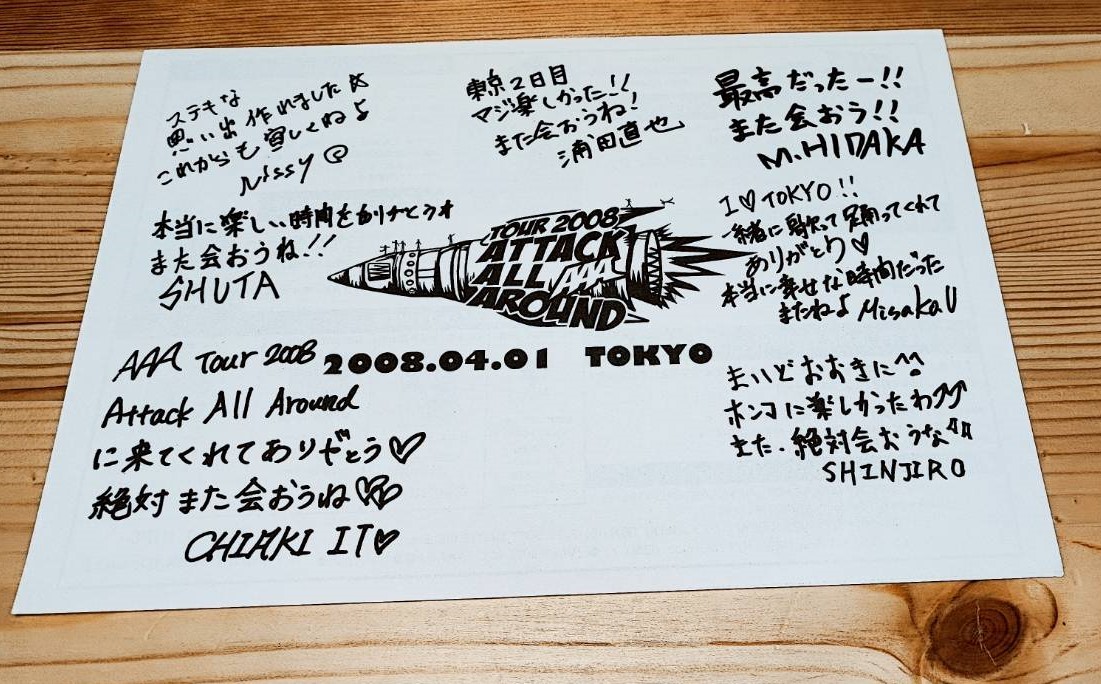 ステキな
思い出作れました☆
これからも宜しくねよ
Nissy
東京2日目
マジ楽しかった!!
また会おうね!
浦田直也
最高だったー!!
また会おう!!
M.HIDAKA
本当に楽しい時間をありがとうオ
また会おうね!!
SHUTA
TOUR 2008
ATTACK
ALL AAA
AROUND
I♡TOKYO!!
一緒に歌って踊ってくれて
ありがとう♡
本当に幸せな時間だった
またねよ Misako U
2008.04.01 TOKYO
AAA Tour 2008
Attack All Around
に来てくれてありがとう♡
絶対また会おうね♡♡
CHIAKI IT♡
まいどおおきに^^
ホンマに楽しかったわ⤴⤴
また、絶対会おうな
SHINJIRO